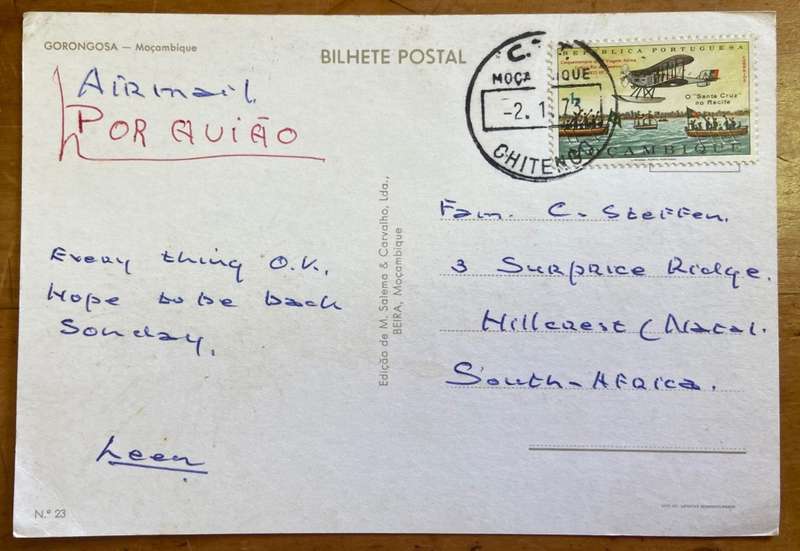 GORONGOSA — Moçambique
BILHETE POSTAL
Airmail
POR AVIÃO
Every thing O.K.
Hope to be back
Sonday.
Leen
N.º 23
Edição de M. Salema & Carvalho, Lda.,
BEIRA, Moçambique
MOÇAMBIQUE
-2. 1
CHITENGO
REPÚBLICA PORTUGUESA
O "Santa Cruz"
no Recife
MOÇAMBIQUE
Fam. C. Steffen.
3 Surprice Ridge.
Hillcrest (Natal.
South-Africa.